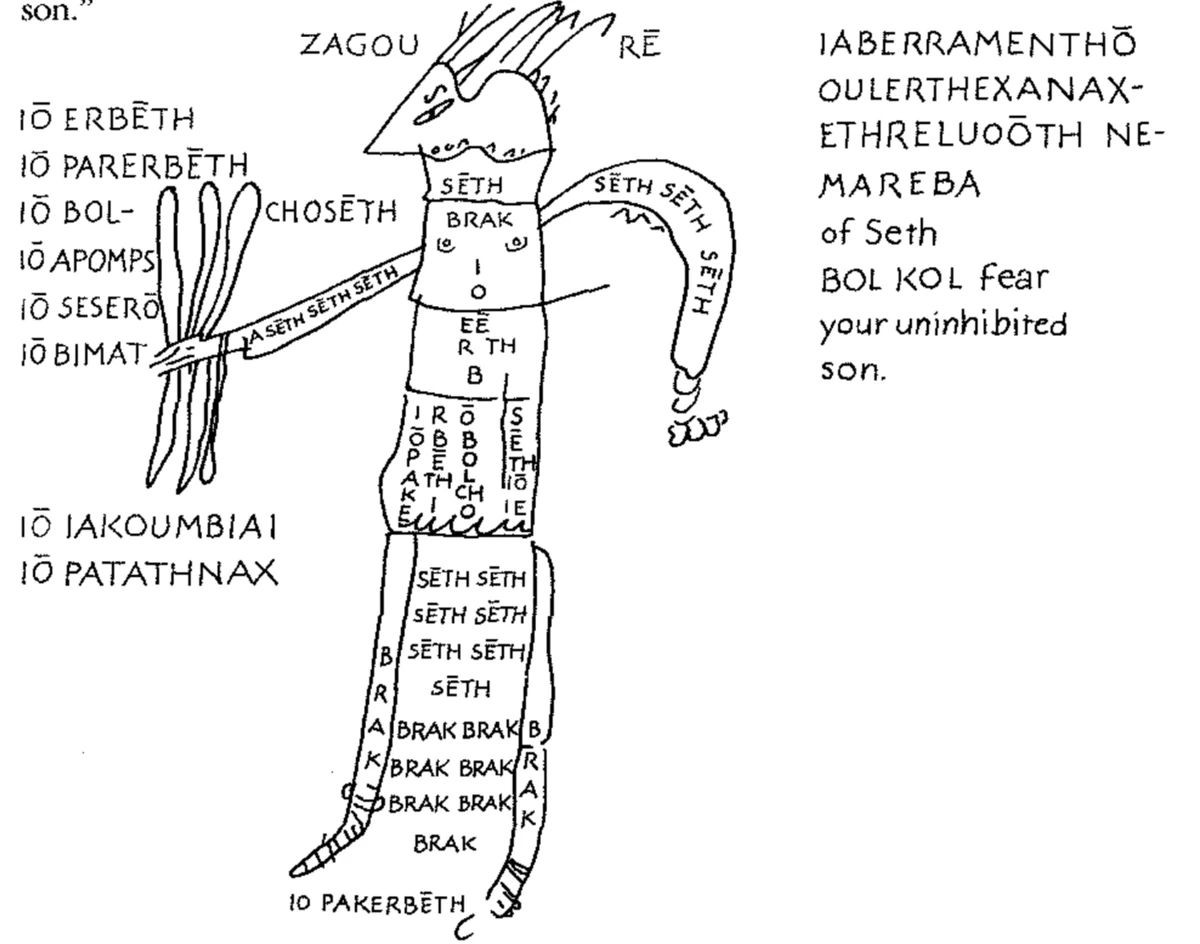 son."
ZAGOU RĒ
IŌ ERBĒTH
IŌ PARERBĒTH
IŌ BOL-
CHOSĒTH
IŌ APOMPS
IŌ SESERŌ
IŌ BIMAT
IŌ IAKOUMBIAI
IŌ PATATHNAX
SĒTH
BRAK
I
O
EĒ
R TH
B
A SĒTH SĒTH SĒTH
SĒTH SĒTH SĒTH
I R Ō S
Ō B B Ē
P Ē O TH
A TH L IŌ
K I CH IE
E O
SĒTH SĒTH
SĒTH SĒTH
SĒTH SĒTH
SĒTH
BRAK BRAK
BRAK BRAK
BRAK BRAK
BRAK
BRAK
BRAK
IO PAKERBĒTH
IABERRAMENTHŌ
OULERTHEXANAX-
ETHRELUOŌTH NE-
MAREBA
of Seth
BOL KOL fear
your uninhibited
son.